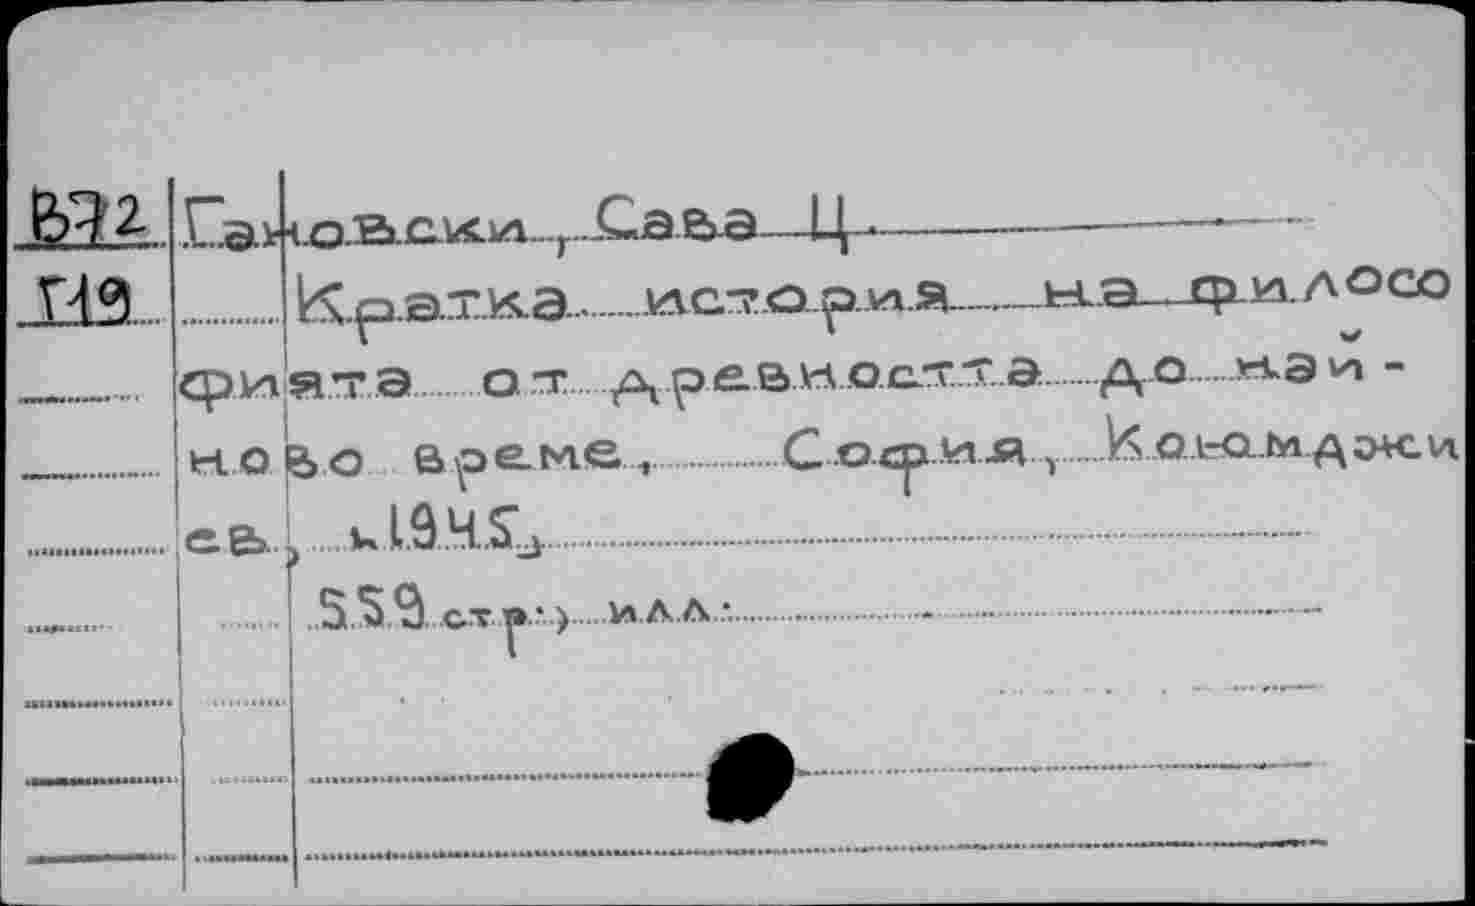 B72 Гановски, Сава Ц.
Г19 Кратка история на филосо
фията от древността до най-
ново време, София, Коюмджи
ев, 1945,
559 стр.; илл.